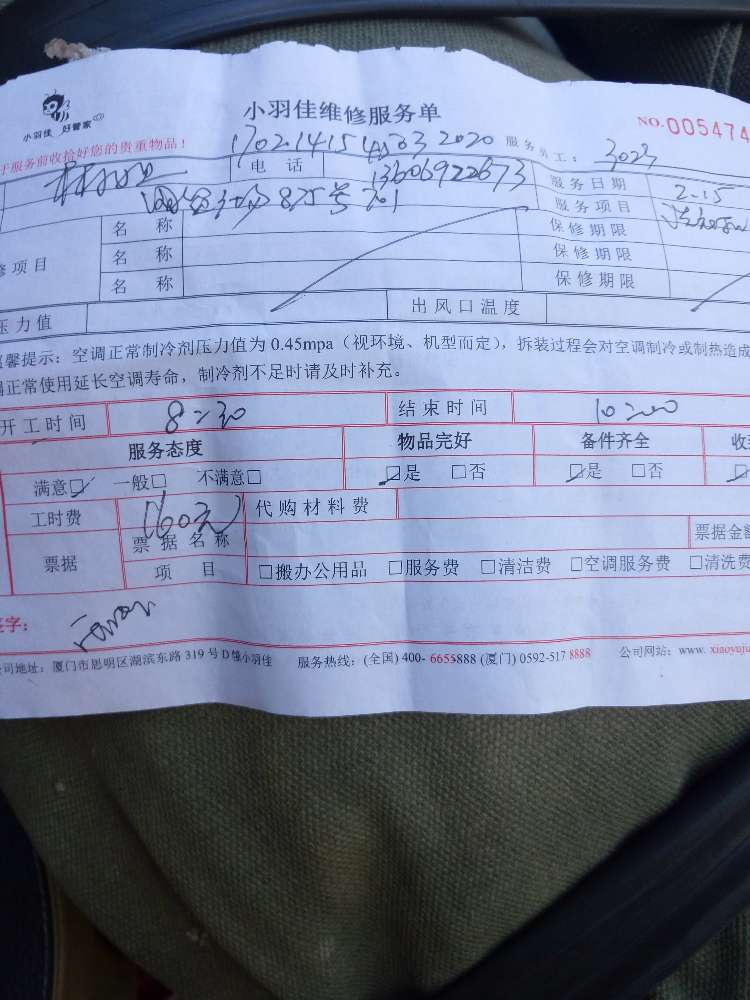 小羽佳维修服务单
小羽佳 好管家
NO.005474
于服务前收拾好您的贵重物品！
17021415 2020 服务员工：3023
电话 13606922673 服务日期 2.15
875号 服务项目
名称 保修期限
修项目 名称 保修期限
名称 保修期限
压力值 出风口温度
温馨提示：空调正常制冷剂压力值为 0.45mpa（视环境、机型而定），拆装过程会对空调制冷或制热造成
调正常使用延长空调寿命，制冷剂不足时请及时补充。
开工时间 8:30 结束时间 10:00
服务态度 物品完好 备件齐全 收
满意☑ 一般□ 不满意□ ☑是 □否 ☑是 □否
工时费 160元 代购材料费
票据 票据名称 票据金额
项目 □搬办公用品 □服务费 □清洁费 □空调服务费 □清洗费
签字：
公司地址：厦门市思明区湖滨东路 319 号 D 幢小羽佳 服务热线：(全国) 400- 6655888 (厦门) 0592-517 8888 公司网站：www. xiaoyuju